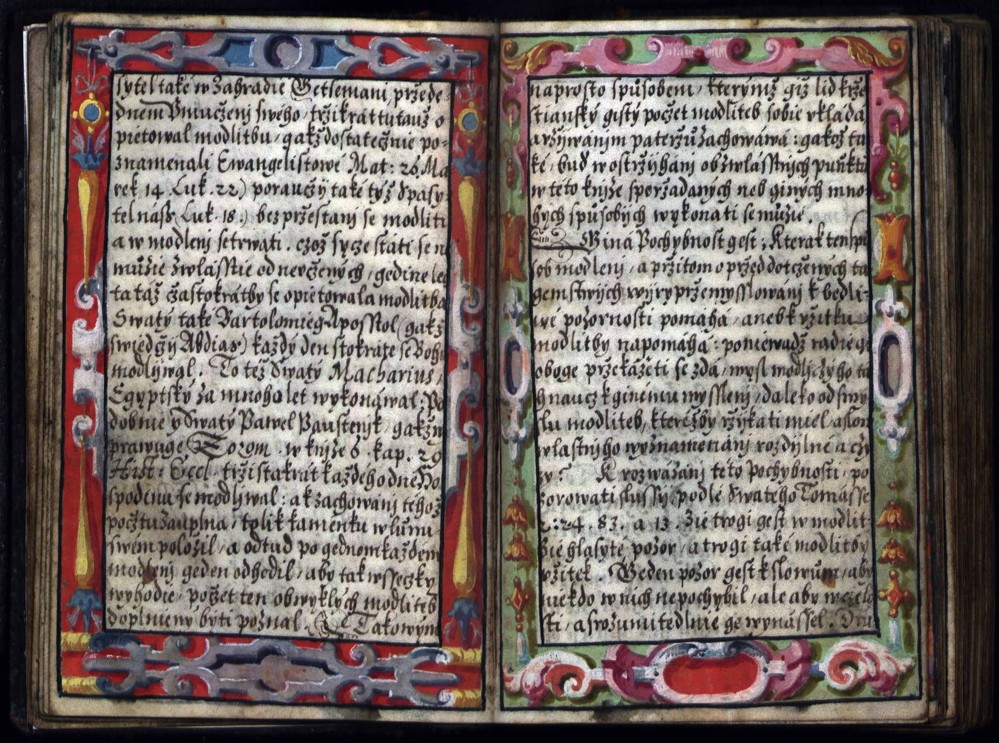 sytel také w Zahradie Getsemani, przede
dnem Vmučzeni swého, trzikrát tutauž o
pietowal modlitbu, gakž dostatečnie po=
znamenali Ewangelistowé Mat: 26. Ma
rek 14. Luk. 22) poraučzý také týž Spasy
tel náss Luk. 18.) bez przestani se modliti
a w modleni setrwati. což sycze stati se ne
můžie zwlásstie od neučzených, gedine le
ta táž čzastokrátby se opietowala modlitba
Swatý také Bartolomieg Aposstol (gakž
swiedčý Abdias) každý den stokráte se Bohu
modlýwal. To též Swatý Macharius
Egyptský za mnoho let wykonáwal. Po
dobnie y Swatý Pawel Paustenjk, gakž w
prawuge Sozom. w knize 6. kap. 29
Hist: Eccl. trzi stakrát každého dne Ho
spodinu se modlýwal: a k zachowani téhož
počztu zauplna, tolik kamenku w lůnu
swém položil, a odtud po gednom každem
modleni geden odhodil, aby tak wsseczky
wyhodie, počzet ten obwyklých modliteb
doplnieny býti poznal. Takowým
naprosto spůsobem, kterýmž giž lid krze
stianský gistý počzet modliteb sobie wkládá
a vžýwáným paterzů zachowáwá: gakož ta
ké, bud w ostrzýháni obzwlásstnjch punktů
w této knjze sporzádaných neb giných mno
hých spůsobých wykonati se můžie.
Giná Pochybnost gest; Kterak ten spů
sob modleni, a przitom o przed dotczených ta
gemstwjch wjry przemysslowáni k bedli=
wé pozornosti pomáhá, aneb k vžitku
modlitby napomáhá: poniewadž radiegi
oboge przekážeti se zdá, mysl modlicýho ta
hnaucz k ginému mysslenj, daleko od smy
slu modliteb, kterežby rzjkati miel, a slow
wlastnjho wyznamenánj rozdjlné a czý
zý? K rozwážáni této Pochybnosti, po
zorowati slussý, podle Swatého Tomásse
2. 2: 24. 83. a 13. že trogi gest w modlit
bie hlasyté pozor, a trogi také modlitby
vžitek. Geden pozor gest k slowům, aby
niekdo w nich nepochybil, ale aby w czelo
sti, a srozumitedlnie ge wynássel. Dru